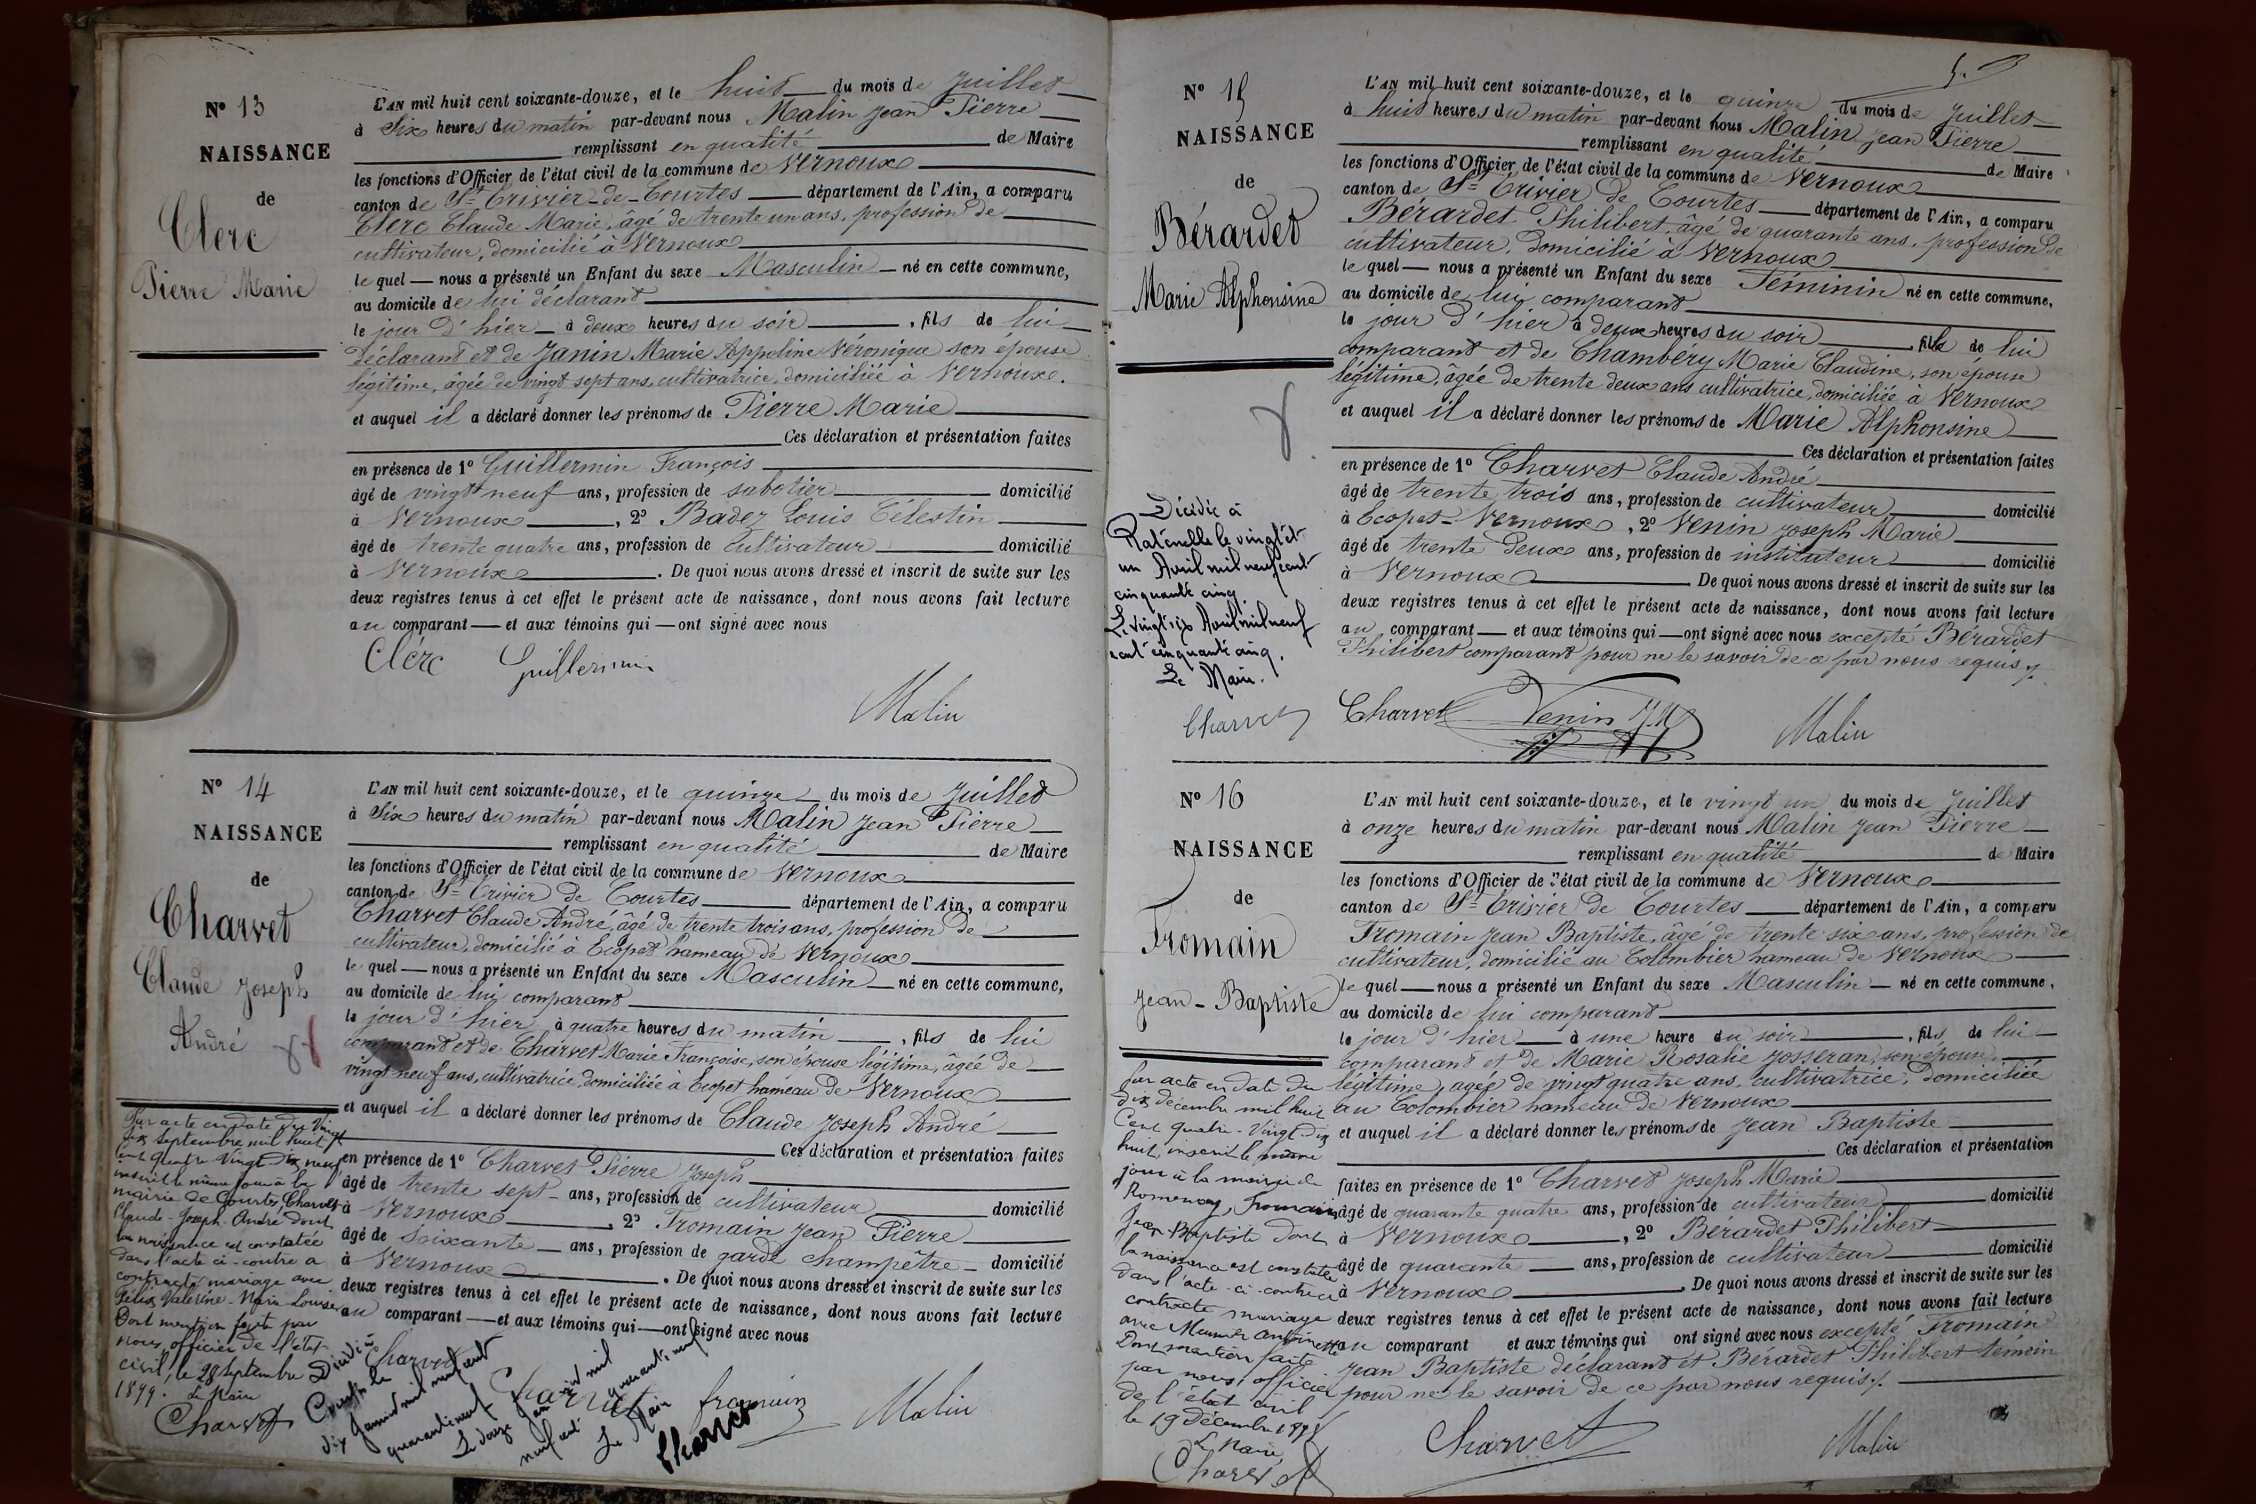 N° 13
NAISSANCE
de
Clerc
Pierre Marie
L'AN mil huit cent soixante-douze, et le huit du mois de Juillet
à Six heures du matin par-devant nous Malin Jean Pierre
remplissant en qualité de Maire
les fonctions d'Officier de l'état civil de la commune de Vernoux
canton de St Trivier-de-Courtes département de l'Ain, a comparu
Clerc Claude Marie, âgé de trente un ans, profession de
cultivateur, domicilié à Vernoux
le quel nous a présenté un Enfant du sexe Masculin né en cette commune,
au domicile de lui déclarant
le jour d'hier à deux heures du soir, fils de lui
déclarant et de Janin Marie Appoline Véronique son épouse
légitime, âgée de vingt sept ans, cultivatrice, domiciliée à Vernoux.
et auquel il a déclaré donner les prénoms de Pierre Marie
Ces déclaration et présentation faites
en présence de 1° Guillermin François
âgé de vingt neuf ans, profession de sabotier domicilié
à Vernoux, 2° Badez Louis Célestin
âgé de trente quatre ans, profession de cultivateur domicilié
à Vernoux. De quoi nous avons dressé et inscrit de suite sur les
deux registres tenus à cet effet le présent acte de naissance, dont nous avons fait lecture
au comparant et aux témoins qui ont signé avec nous
Clerc Guillermin
Malin
N° 14
NAISSANCE
de
Charvet
Claude Joseph
André
L'AN mil huit cent soixante-douze, et le quinze du mois de Juillet
à Six heures du matin par-devant nous Malin Jean Pierre
remplissant en qualité de Maire
les fonctions d'Officier de l'état civil de la commune de Vernoux
canton de St Trivier de Courtes département de l'Ain, a comparu
Charvet Claude André, âgé de trente trois ans, profession de
cultivateur, domicilié à Ecopet hameau de Vernoux
le quel nous a présenté un Enfant du sexe Masculin né en cette commune,
au domicile de lui comparant
le jour d'hier à quatre heures du matin, fils de lui
comparant et de Charvet Marie Françoise, son épouse légitime, âgée de
vingt neuf ans, cultivatrice, domiciliée à Ecopet hameau de Vernoux
et auquel il a déclaré donner les prénoms de Claude Joseph André
Ces déclaration et présentation faites
en présence de 1° Charvet Pierre Joseph
âgé de trente sept ans, profession de cultivateur domicilié
à Vernoux, 2° Fromain Jean Pierre
âgé de soixante ans, profession de garde champêtre domicilié
à Vernoux. De quoi nous avons dressé et inscrit de suite sur les
deux registres tenus à cet effet le présent acte de naissance, dont nous avons fait lecture
au comparant et aux témoins qui ont signé avec nous
Charvet Charvet fromain Malin
Par acte en date du Vingt
six Septembre mil huit
cent quatre Vingt Dix neuf
inscrit le même jour à la
mairie de Courtes, Charvet
Claude-Joseph-André dont
la naissance est constatée
dans l'acte ci-contre a
contracté mariage avec
Félix Valérine-Marie Louise
Dont mention faite par
nous, officier de l'état
civil, le 28 Septembre
1899. Le Maire
Charvet
Décédé à
Courtes le
dix Janvier mil neuf cent
quarante neuf
Le douze Janvier mil
neuf cent quarante neuf
Le Maire
Charvet
5.
N° 15
NAISSANCE
de
Bérardet
Marie Alphonsine
L'AN mil huit cent soixante-douze, et le quinze du mois de Juillet
à huit heures du matin par-devant nous Malin Jean Pierre
remplissant en qualité de Maire
les fonctions d'Officier de l'état civil de la commune de Vernoux
canton de St Trivier de Courtes département de l'Ain, a comparu
Bérardet Philibert, âgé de quarante ans, profession de
cultivateur, domicilié à Vernoux
le quel nous a présenté un Enfant du sexe Féminin né en cette commune,
au domicile de lui comparant
le jour d'hier à deux heures du soir, fille de lui
comparant et de Chambéry Marie Claudine, son épouse
légitime, âgée de trente deux ans cultivatrice, domiciliée à Vernoux
et auquel il a déclaré donner les prénoms de Marie Alphonsine
Ces déclaration et présentation faites
en présence de 1° Charvet Claude André
âgé de trente trois ans, profession de cultivateur domicilié
à Ecopet-Vernoux, 2° Venin Joseph Marie
âgé de trente deux ans, profession de instituteur domicilié
à Vernoux De quoi nous avons dressé et inscrit de suite sur les
deux registres tenus à cet effet le présent acte de naissance, dont nous avons fait lecture
au comparant et aux témoins qui ont signé avec nous excepté Bérardet
Philibert comparant pour ne le savoir de ce par nous requis
Charvet Venin J.M Malin
Décédée à
Ratenelle le vingt et
un Avril mil neuf cent
cinquante cinq
Le vingt six Avril mil neuf
cent cinquante cinq.
Le Maire.
Charvet
N° 16
NAISSANCE
de
Fromain
Jean-Baptiste
L'AN mil huit cent soixante-douze, et le vingt un du mois de Juillet
à onze heures du matin par-devant nous Malin Jean Pierre
remplissant en qualité de Maire
les fonctions d'Officier de l'état civil de la commune de Vernoux
canton de St Trivier de Courtes département de l'Ain, a comparu
Fromain Jean Baptiste, âgé de trente six ans, profession de
cultivateur, domicilié au Colombier hameau de Vernoux
le quel nous a présenté un Enfant du sexe Masculin né en cette commune,
au domicile de lui comparant
le jour d'hier à une heure du soir, fils de lui
comparant et de Marie Rosalie Josseran, son épouse
légitime, agée de vingt quatre ans, cultivatrice, domiciliée
au Colombier hameau de Vernoux
et auquel il a déclaré donner les prénoms de Jean Baptiste
Ces déclaration et présentation
faites en présence de 1° Charvet Joseph Marie
âgé de quarante quatre ans, profession de cultivateur domicilié
à Vernoux, 2° Bérardet Philibert
âgé de quarante ans, profession de cultivateur domicilié
à Vernoux. De quoi nous avons dressé et inscrit de suite sur les
deux registres tenus à cet effet le présent acte de naissance, dont nous avons fait lecture
au comparant et aux témoins qui ont signé avec nous excepté Fromain
Jean Baptiste déclarant et Bérardet Philibert témoin
pour ne le savoir de ce par nous requis.
Charvet Malin
Par acte en date du
dix décembre mil huit
Cent quatre-Vingt Dix
huit, inscrit le même
jour à la mairie de
Romenay, Fromain
Jean-Baptiste dont
la naissance est constatée
dans l'acte ci-contre a
contracté mariage
avec Meunier Antoinette
Dont mention faite
par nous, officier
de l'état civil
le 19 Décembre 1898
Le Maire,
Charvet